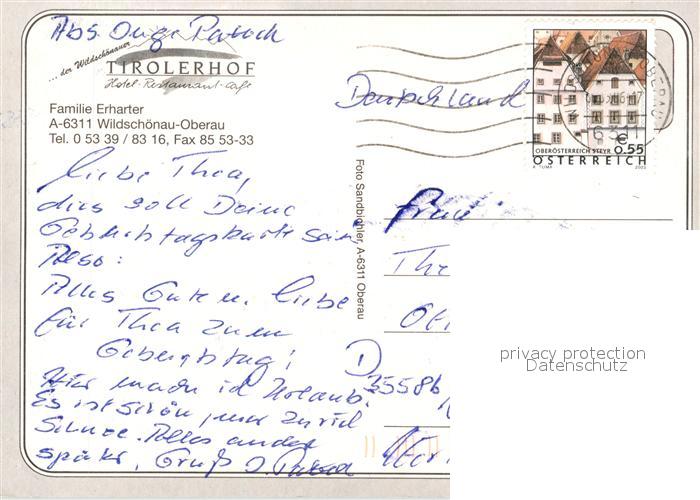 Abs.
... der Wildschönauer
TIROLERHOF
Hotel-Restaurant-Café
Familie Erharter
A-6311 Wildschönau-Oberau
Tel. 0 53 39 / 83 16, Fax 85 53-33
Deutschland
6311
OBERÖSTERREICH STEYR
€ 0.55
ÖSTERREICH
2003
Foto Sandbichler, A-6311 Oberau
Liebe Thea,
dies soll Deine
Geburtstagskarte sein,
Also:
Alles Guten, liebe
für Thea zum
Geburtstag!
Hier mach ich Urlaub.
Es ist schön, nur zuviel
Schnee. Alles andere
später, Gruß
Frau
The
D
35586
privacy protection
Datenschutz